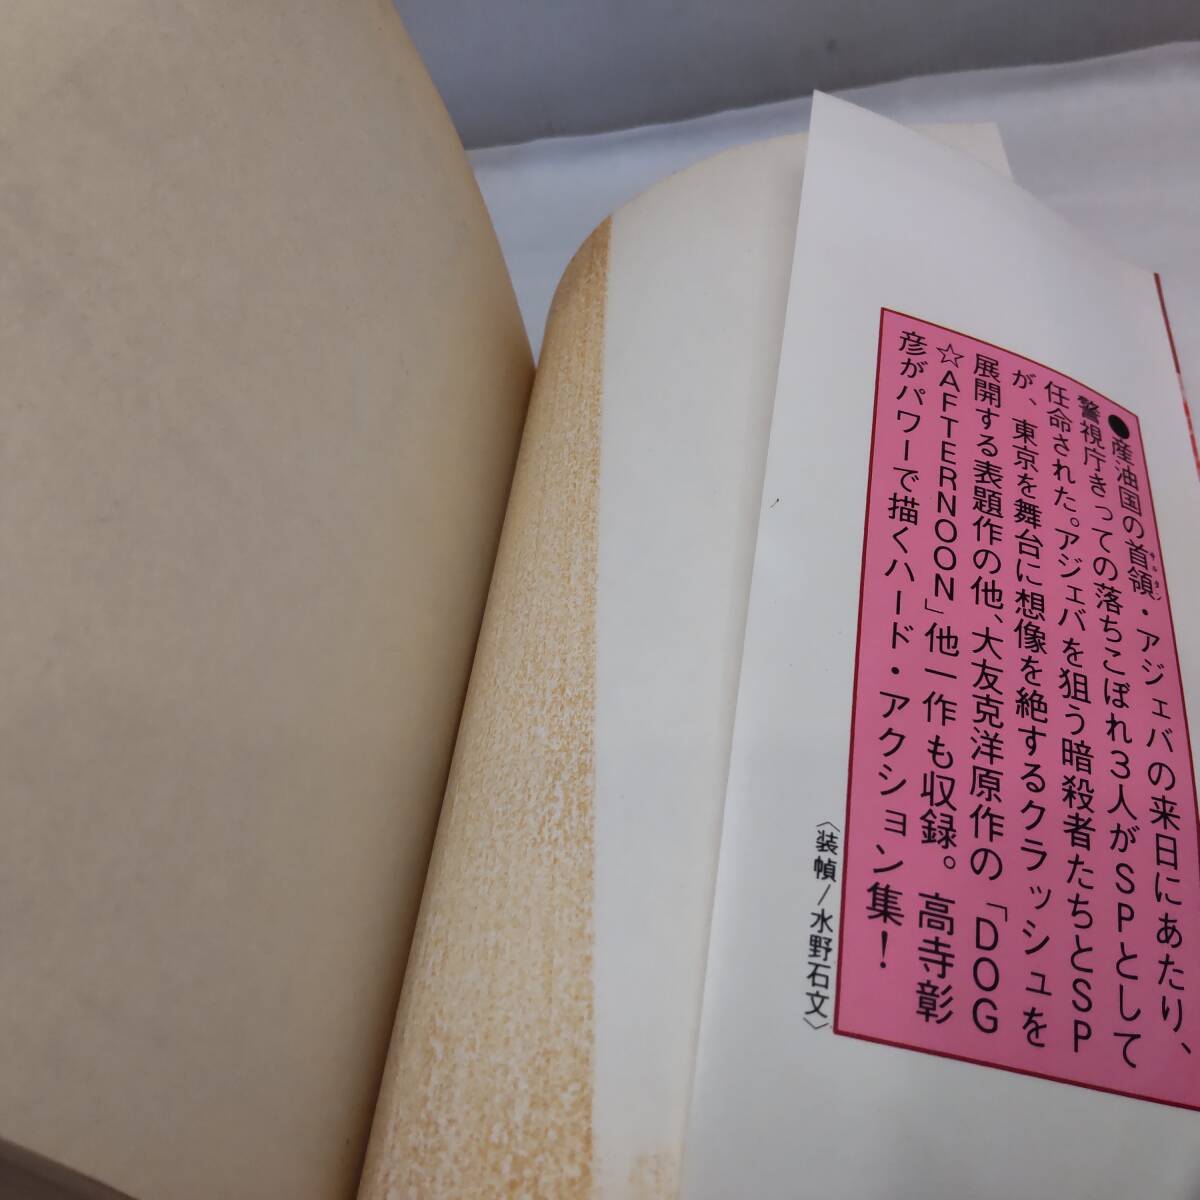 ●産油国の首領・アジェバの来日にあたり、
警視庁きっての落ちこぼれ3人がSPとして
任命された。アジェバを狙う暗殺者たちとSP
が、東京を舞台に想像を絶するクラッシュを
展開する表題作の他、大友克洋原作の「DOG
☆AFTERNOON」他一作も収録。高寺彰
彦がパワーで描くハード・アクション集！
〈装幀/水野石文〉